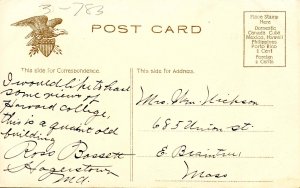 3-783
POST CARD
Place Stamp
Here
Domestic
Canada, Cuba
Mexico, Hawaii
Philippines
Porto Rico
1 Cent
Foreign
2 Cents
This side for Correspondence.
This side for Address.
I would like to have
some views of
Harvard College,
this is a quaint old
building
Ross Bassett
Hagerstown
Md.
Mrs. Wm Hickson
685 Union St.
E Braintree
Mass